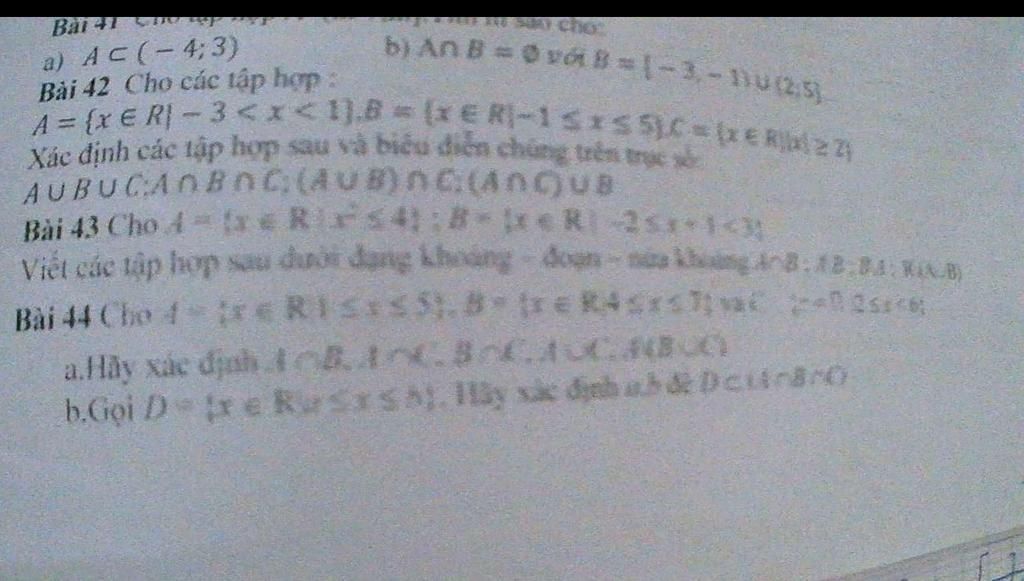 Bài 41 Cho tập hợp sao cho:
a) A ⊂ (− 4; 3) b) A∩ B = ∅ với B = [−3, −1) ∪ (2;5]
Bài 42 Cho các tập hợp :
A = {x ∈ R| − 3 < x < 1}.B = {x ∈ R|−1 ≤ x ≤ 5}.C = {x ∈ R||x| ≥ 2}
Xác định các tập hợp sau và biểu diễn chúng trên trục số:
A ∪ B ∪ C;A ∩ B ∩ C; (A ∪ B) ∩ C; (A ∩ C) ∪ B
Bài 43 Cho A = {x ∈ R | x² ≤ 4} ; B = {x ∈ R | −2 ≤ x + 1 < 3}
Viết các tập hợp sau dưới dạng khoảng – đoạn – nửa khoảng A∩B ; A\B ; B\A ; R\(A∪B)
Bài 44 Cho A = {x ∈ R|1 ≤ x ≤ 5}, B = {x ∈ R|4 ≤ x ≤ 7} và C 2≤x<6}
a.Hãy xác định A ∩ B, A ∩ C, B ∩ C, A ∪ C, A\(B ∪ C)
b.Gọi D = {x ∈ R|a ≤ x ≤ b}. Hãy xác định a,b để D ⊂ (A∩B∩C)